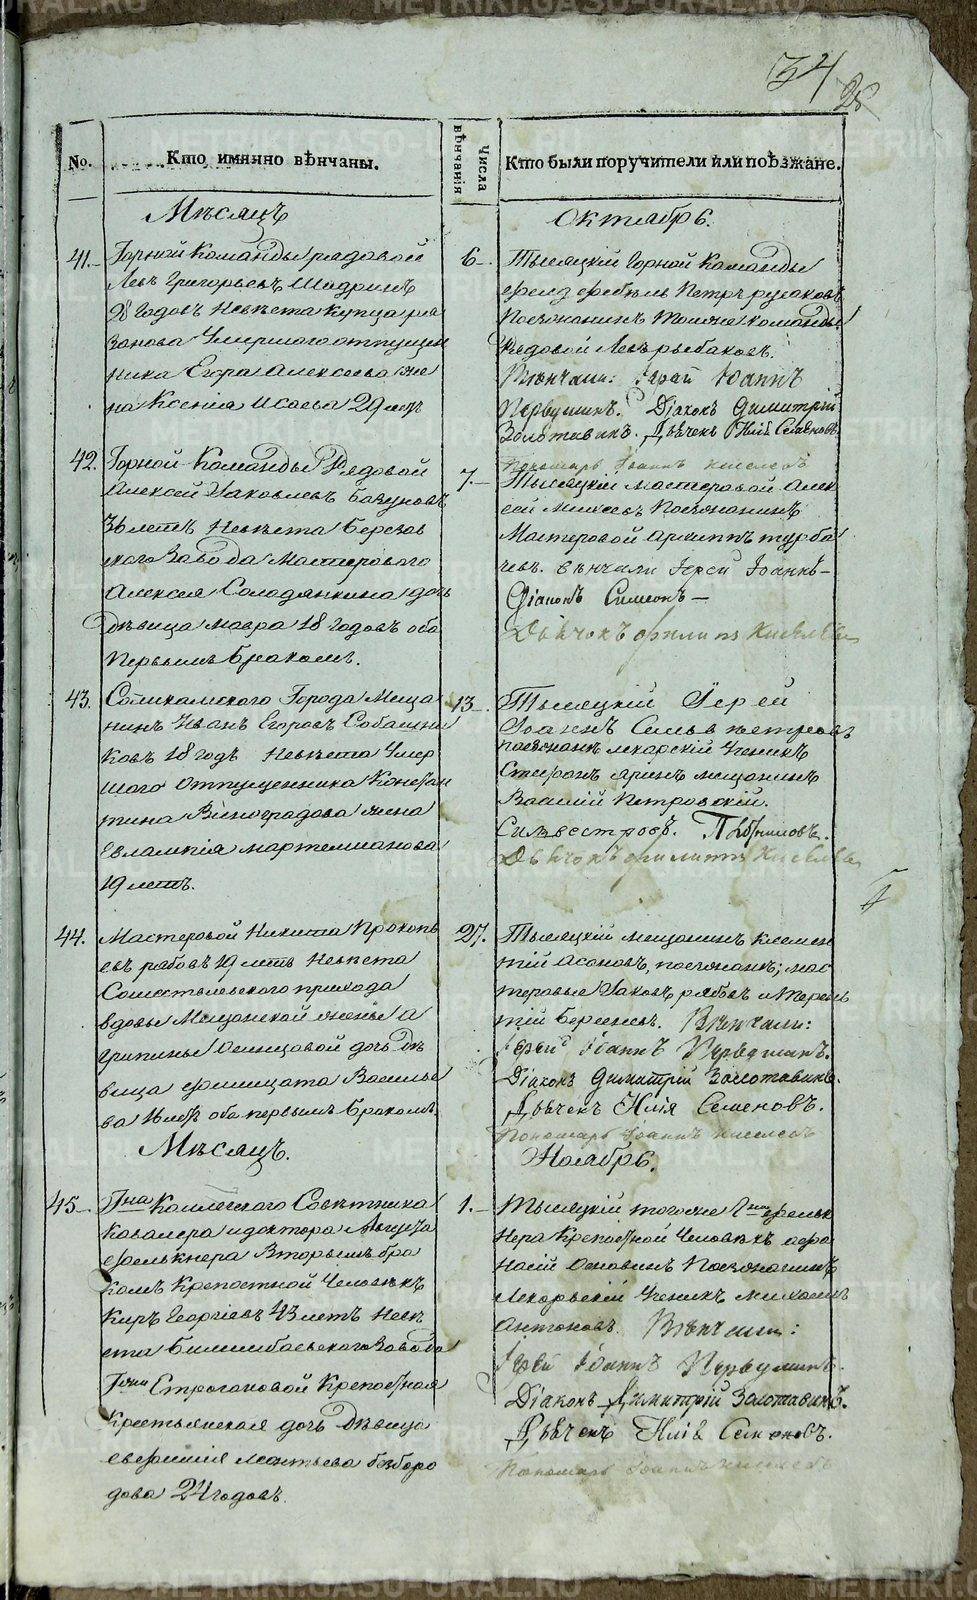 34
28
No.
Кто имянно вѣнчаны.
Числа вѣнчанія
Кто были поручители или поѣзжане.
Мѣсяцъ
Октябрь.
41.
Горной Команды рядовой
Левъ Григорьевъ Шадринъ
28 годовъ Невѣста Купца ря
занова Умершаго отпущен
ника Егора Алексеева же
на Ксенія Исаева 29 летъ
6
Тысяцкій Горной Команды
фелдфебель Петръ русаковъ
Поезжанинъ тойже команды
Рядовой Левъ рыбаковъ.
Вѣнчали: Іерей Іоаннъ
Первушинъ. Діаконъ Димитрій
Золотавинъ. Дьячекъ Илія Семеновъ.
Пономарь Іоаннъ Киселевъ
42.
Горной Команды Рядовой
Алексей Яковлевъ
36 летъ Невѣста Березов
скаго Завода Мастероваго
Алексея Солодянкина дочь
Дѣвица Мавра 18 годовъ оба
Первымъ бракомъ.
7.
Тысяцкій мастеровой Алек
сей Поезжанинъ
Мастеровой Архиппъ турба
чевъ. вѣнчали Іерей Іоаннъ
Діаконъ Симеонъ
Дьячокъ Филиппъ Киселевъ
43.
Соликамского Города Меща
нинъ Иванъ Егоровъ Собашни
ковъ 18 годъ Невѣста Умер
шаго отпущенника Констан
тина Виноградова жена
Евлампія Мартемианова
19 летъ.
13
Тысяцкій Іерей
Іоаннъ Сильвестровъ
поезжанинъ лекарскій Ученикъ
Стефанъ Яринъ мещанинъ
Василій Петровскій.
Сильвестровъ.
Дьячокъ Филиппъ Киселевъ
44.
Мастеровой Никита Прокопь
евъ рябовъ 19 летъ Невѣста
Сошествиевского прихода
вдовы Мещанской жены А
грипины дочь дѣ
вица Фомицата Василье
ва 18 летъ оба первымъ бракомъ.
27.
Тысяцкій мещанинъ Клемен
тій Асоновъ, поезжане; мас
теровые Яковъ рябовъ и Терен
тій Берсеневъ. Вѣнчали:
Іерей Іоаннъ Первушинъ.
Діаконъ Димитрій Золотавинъ.
Дьячекъ Илія Семеновъ.
Пономарь Іоаннъ Киселевъ
Мѣсяцъ.
Ноябрь.
45
Гна Коллежского Совѣтника
Кавалера и доктора Августа
фелькнера Вторымъ бра
комъ Крепостной Человѣкъ
Киръ Георгіевъ 43 летъ Невѣ
ста Билимбаевскаго Завода
Гжи Строгановой Крепостная
Крестьянская дочь Дѣвица
Леонтьева безборо
дова 24 годовъ.
1.
Тысяцкій тогоже Гна фельк
нера Крепостной Человѣкъ Афа
насій Поезжанинъ
Лекарьскій Ученикъ Михаилъ
Антоновъ. Вѣнчали:
Іерей Іоаннъ Первушинъ.
Діаконъ Димитрій Золотавинъ.
Дьячекъ Илія Семеновъ.
Пономарь Іоаннъ Киселевъ
METRIKI.GASO-URAL.RU